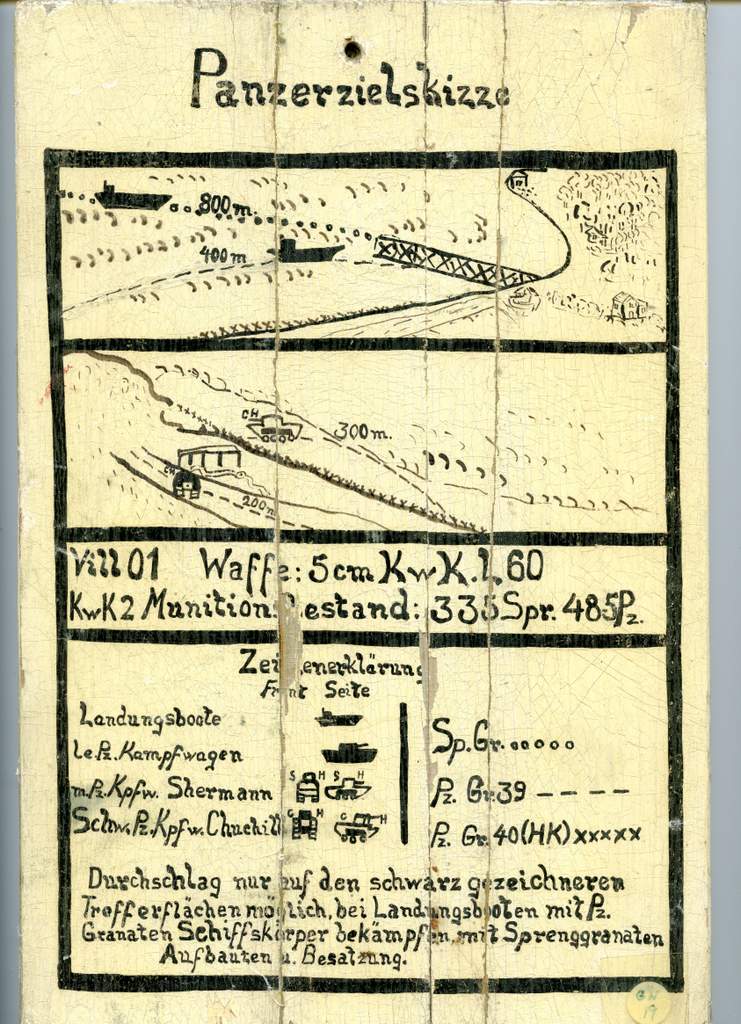 Panzerzielskizze
800 m.
400 m
CH
300 m.
CH
200m
Vill 01 Waffe: 5cm KwK. L 60
KwK 2 Munitions Bestand: 335 Spr. 485 Pz.
Zeichenerklärung
Front Seite
Landungsboote
Le. Pz. Kampfwagen
m. Pz. Kpfw. Shermann S H S H
Schw. Pz. Kpfw. Chuchill C H C H
Sp. Gr. ooooo
Pz. Gr. 39 – – – –
Pz. Gr. 40 (HK) xxxxx
Durchschlag nur auf den schwarz gezeichneren
Trefferflächen möglich, bei Landungsbooten mit Pz.
Granaten Schiffskörper bekämpfen, mit Sprenggranaten
Aufbauten u. Besatzung.
GN
19